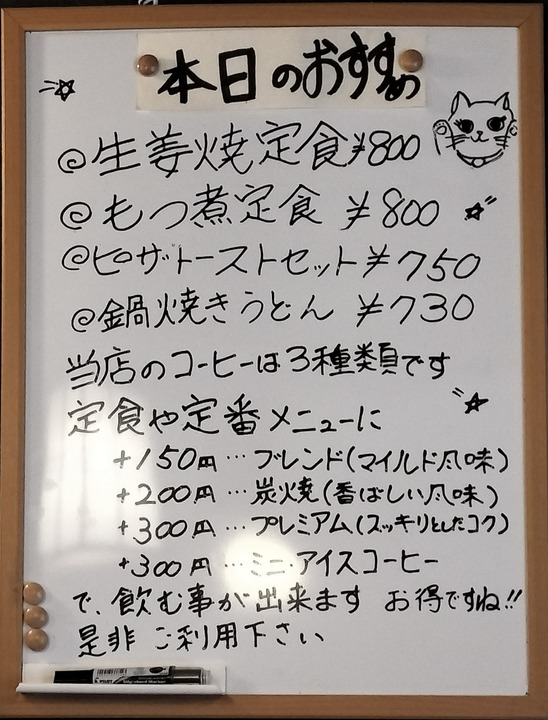 本日のおすすめ
@生姜焼定食¥800
@もつ煮定食 ¥800
@ピザトーストセット¥750
@鍋焼きうどん ¥730
当店のコーヒーは3種類です
定食や定番メニューに
+150円…ブレンド(マイルド風味)
+200円…炭火焼(香ばしい風味)
+300円…プレミアム(スッキリとしたコク)
+300円…ミニ・アイスコーヒー
で、飲む事が出来ます お得ですね!!
是非ご利用下さい
PILOT